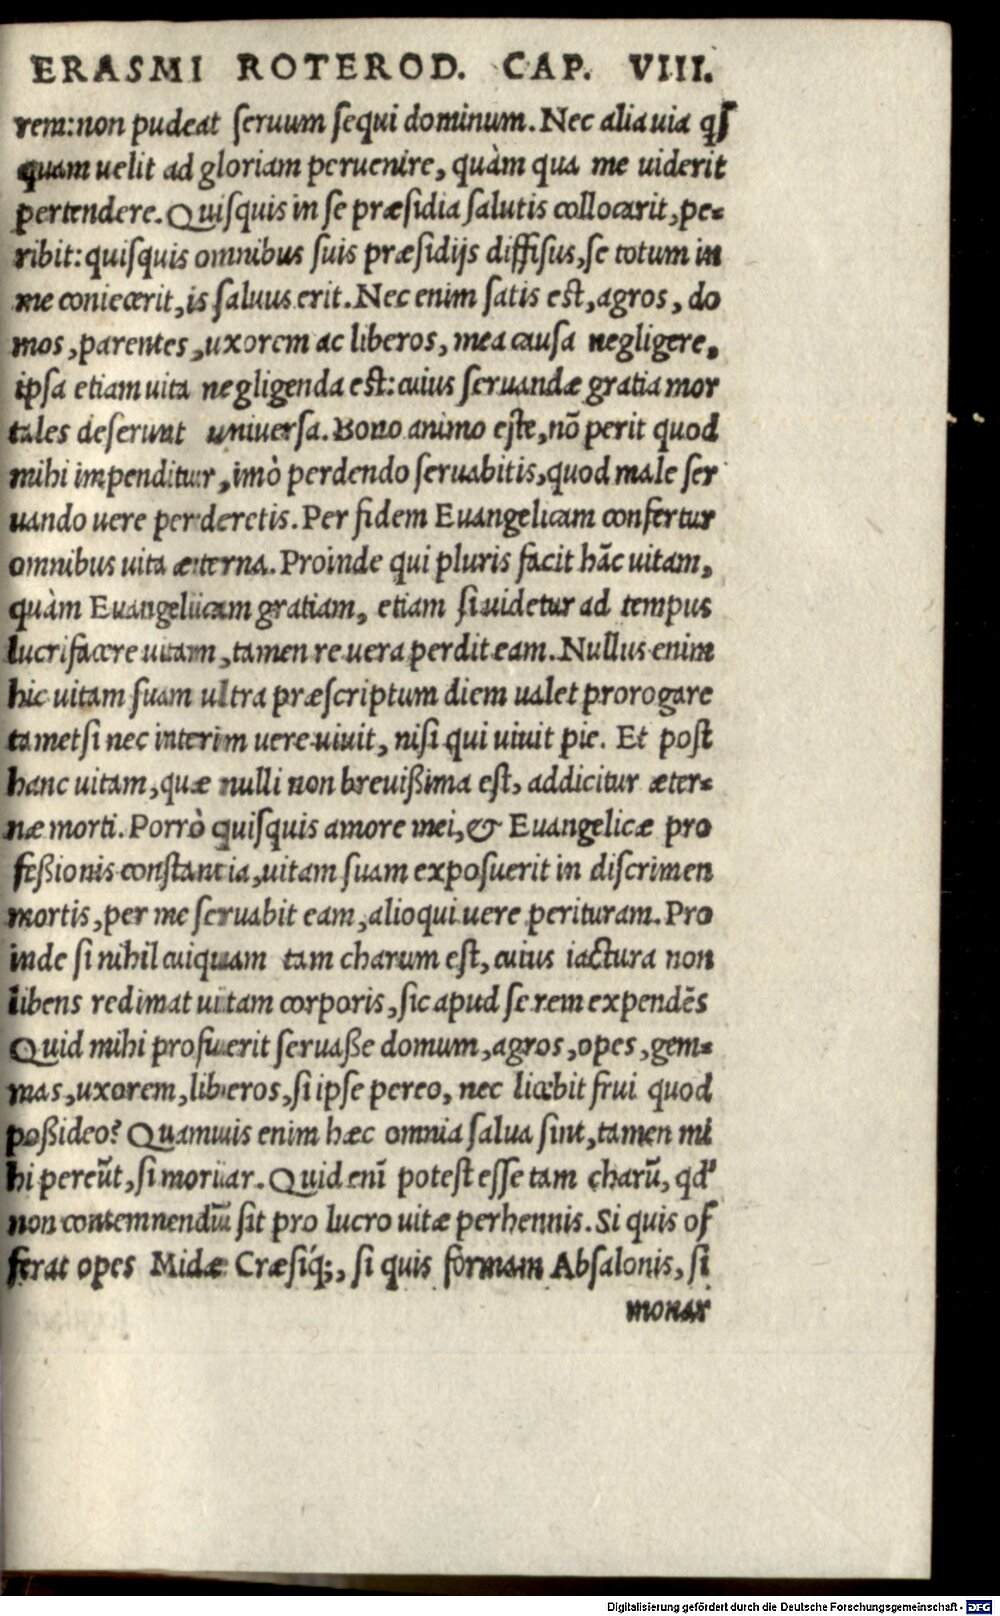 ERASMI ROTEROD. CAP. VIII.
rem: non pudeat ſeruum ſequi dominum. Nec alia uia qſ
quam uelit ad gloriam peruenire, quàm qua me uiderit
pertendere. Quiſquis in ſe præſidia ſalutis collocarit, pe-
ribit: quiſquis omnibus ſuis præſidijs diffiſus, ſe totum in
me coniecerit, is ſaluus erit. Nec enim ſatis eſt, agros, do
mos, parentes, uxorem ac liberos, mea cauſa negligere,
ipſa etiam uita negligenda eſt: cuius ſeruandæ gratia mor
tales deſerunt uniuerſa. Bono animo eſte, nõ perit quod
mihi impenditur, imò perdendo ſeruabitis, quod male ſer
uando uere perderetis. Per fidem Euangelicam confertur
omnibus uita æterna. Proinde qui pluris facit hãc uitam,
quàm Euangelicam gratiam, etiam ſi uidetur ad tempus
lucrifacere uitam, tamen re uera perdit eam. Nullus enim
hic uitam ſuam ultra præſcriptum diem ualet prorogare
tametſi nec interim uere uiuit, niſi qui uiuit pie. Et poſt
hanc uitam, quæ nulli non breuißima eſt, addicitur æter-
næ morti. Porrò quiſquis amore mei, & Euangelicæ pro
feßionis conſtantia, uitam ſuam expoſuerit in diſcrimen
mortis, per me ſeruabit eam, alioqui uere perituram. Pro
inde ſi nihil cuiquam tam charum eſt, cuius iactura non
libens redimat uitam corporis, ſic apud ſe rem expendẽs
Quid mihi profuerit ſeruaße domum, agros, opes, gem-
mas, uxorem, liberos, ſi ipſe pereo, nec licebit frui quod
poßideo? Quamuis enim hæc omnia ſalua ſint, tamen mi
hi pereũt, ſi moriar. Quid enĩ poteſt eſſe tam charũ, qd'
non contemnendũ ſit pro lucro uitæ perhennis. Si quis of
ferat opes Midæ Cræſiq́;, ſi quis formam Abſalonis, ſi
monar
Digitalisierung gefördert durch die Deutsche Forschungsgemeinschaft - DFG